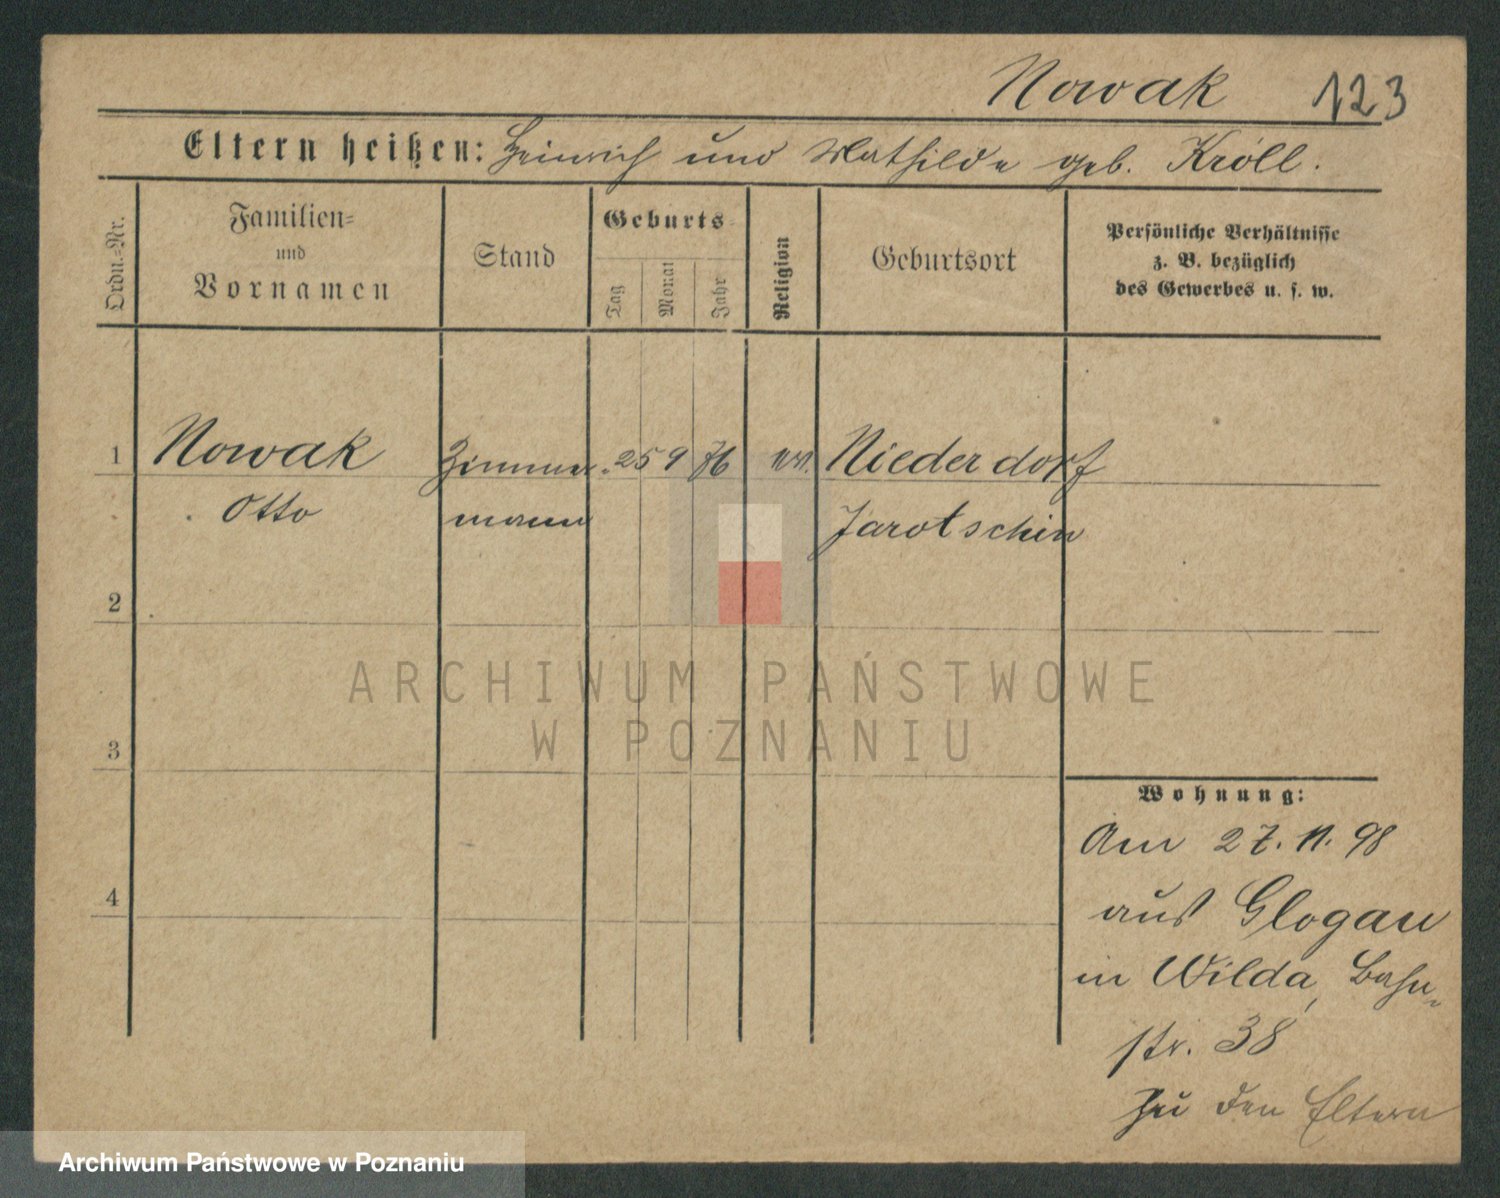 Nowak 123
Eltern heißen: Heinrich und Mathilde geb. Kroll.
Ordn.=Nr.
Familien=
und
Vornamen
Stand
Geburts
Tag
Monat
Jahr
Religion
Geburtsort
Persönliche Verhältnisse
z. B. bezüglich
des Gewerbes u. s. w.
1 Nowak Zimmer- 25 9 76 ev. Niederdorf
Otto mann Jarotschin
2
3
4
Wohnung:
Am 27. 11. 98
aus Glogau
in Wilda, Bahn-
str. 38
zu den Eltern
ARCHIWUM PAŃSTWOWE
W POZNANIU
Archiwum Państwowe w Poznaniu